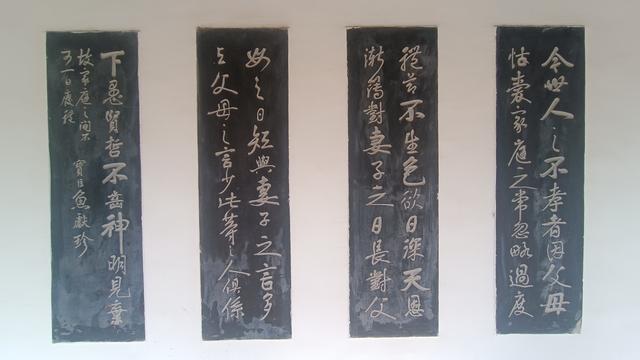 今世人之不孝者因父母
養家庭之常忽略過度
不生色欲日深天恩
漸薄對妻子之日長對父
母之日短與妻子之言多
与父母之言少此等之人俱係
下愚賢哲不齒神明見棄
故家庭之間不
可一日廢
寶臣魚献珍